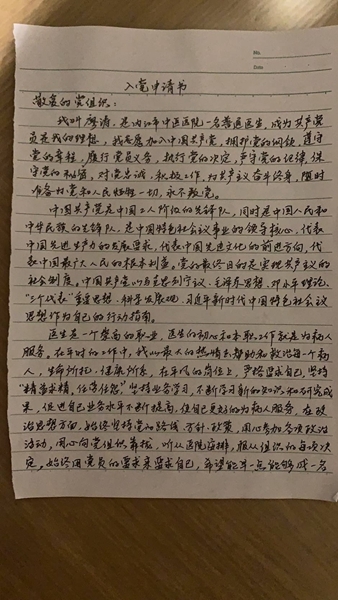 No.
Date
入党申请书
敬爱的党组织：
我叫廖清，是内江市中医医院一名普通医生，成为共产党
员是我的理想，我志愿加入中国共产党，拥护党的纲领，遵守
党的章程，履行党员义务，执行党的决定，严守党的纪律，保
守党的秘密，对党忠诚，积极工作，为共产主义奋斗终身，随时
准备为党和人民牺牲一切，永不叛党。
中国共产党是中国工人阶级的先锋队，同时是中国人民和
中华民族的先锋队，是中国特色社会主义事业的领导核心，代表
中国先进生产力的发展要求，代表中国先进文化的前进方向，代
表中国最广大人民的根本利益。党的最终目的是实现共产主义的
社会制度。中国共产党以马克思列宁主义、毛泽东思想、邓小平理论、
“三个代表”重要思想、科学发展观、习近平新时代中国特色社会主义
思想作为自己的行动指南。
医生是一个崇高的职业，医生的初心和本职工作就是为病人
服务。在平时的工作中，我以最大的热情去帮助和救治每一个病
人，生命所托，健康所系，在平凡的岗位上，严格要求自己，坚持
“精益求精，任劳任怨”坚持业务学习，不断学习新的知识和研究成
果，促进自己业务水平不断提高，使自己更好的为病人服务，在政
治思想方面，始终坚持党的路线、方针、政策，用心参加各项政治
活动，用心向党组织靠拢，听从医院安排，服从组织的每项决
定，始终用党员的要求来要求自己，希望能早一点能够成一名